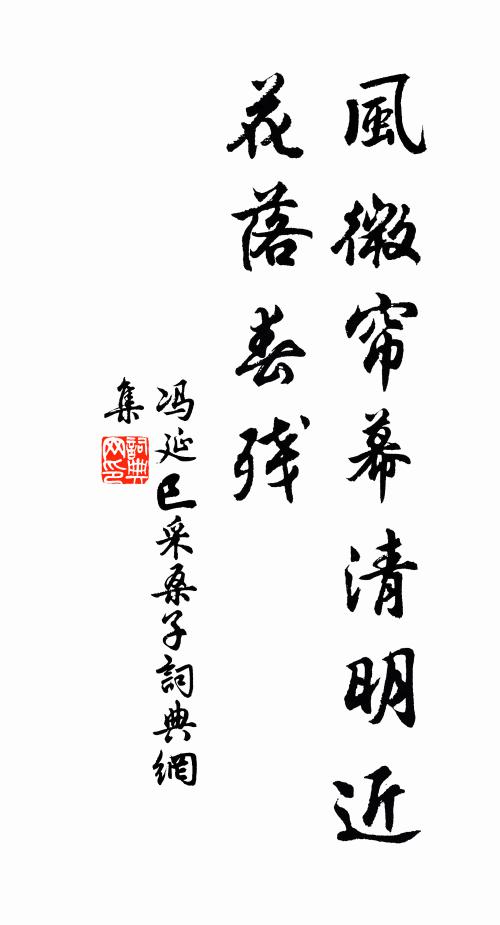 風微帘幕清明近
花落春残
冯延巳采桑子詞典網
集
詞典
网印